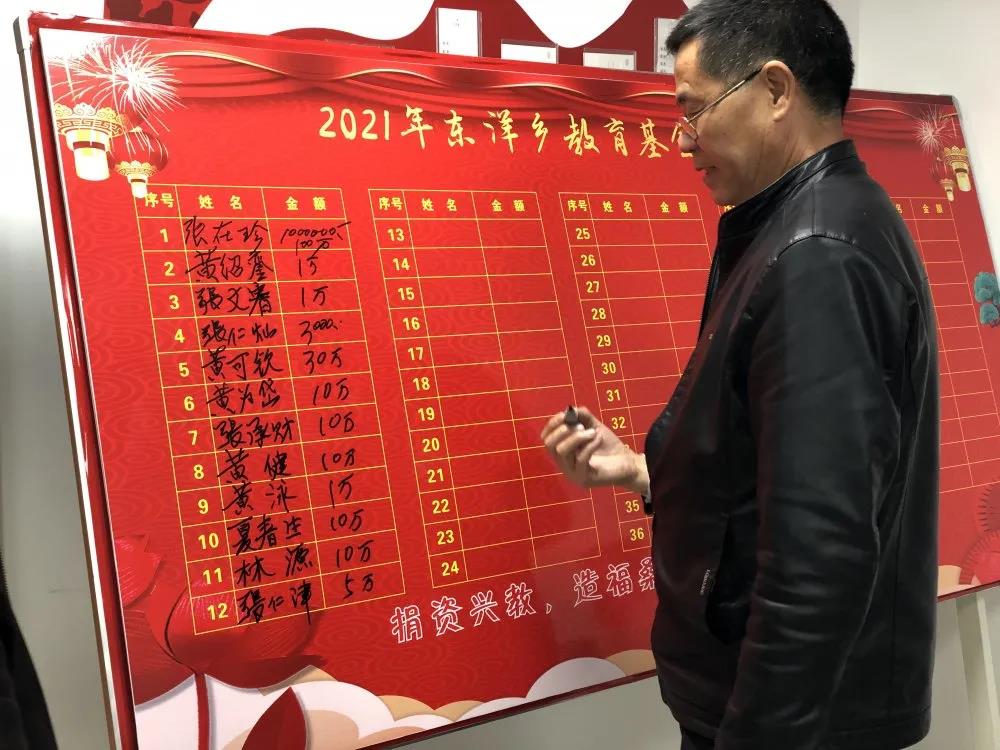 2021年东洋乡教育基
序号 姓名 金额
1 张在珍 1000000 100万
2 黄绍銮 1万
3 张文 1万
4 张仁灿 3000
5 黄可钦 30万
6 黄为岱 10万
7 张承财 10万
8 黄健 10万
9 黄泳 1万
10 夏春生 10万
11 林源 10万
12 张仁津 5万
序号 姓名 金额
13
14
15
16
17
18
19
20
21
22
23
24
序号 姓名 金额
25
26
27
28
29
30
31
32
35
36
名 金额
捐资兴教，造福桑